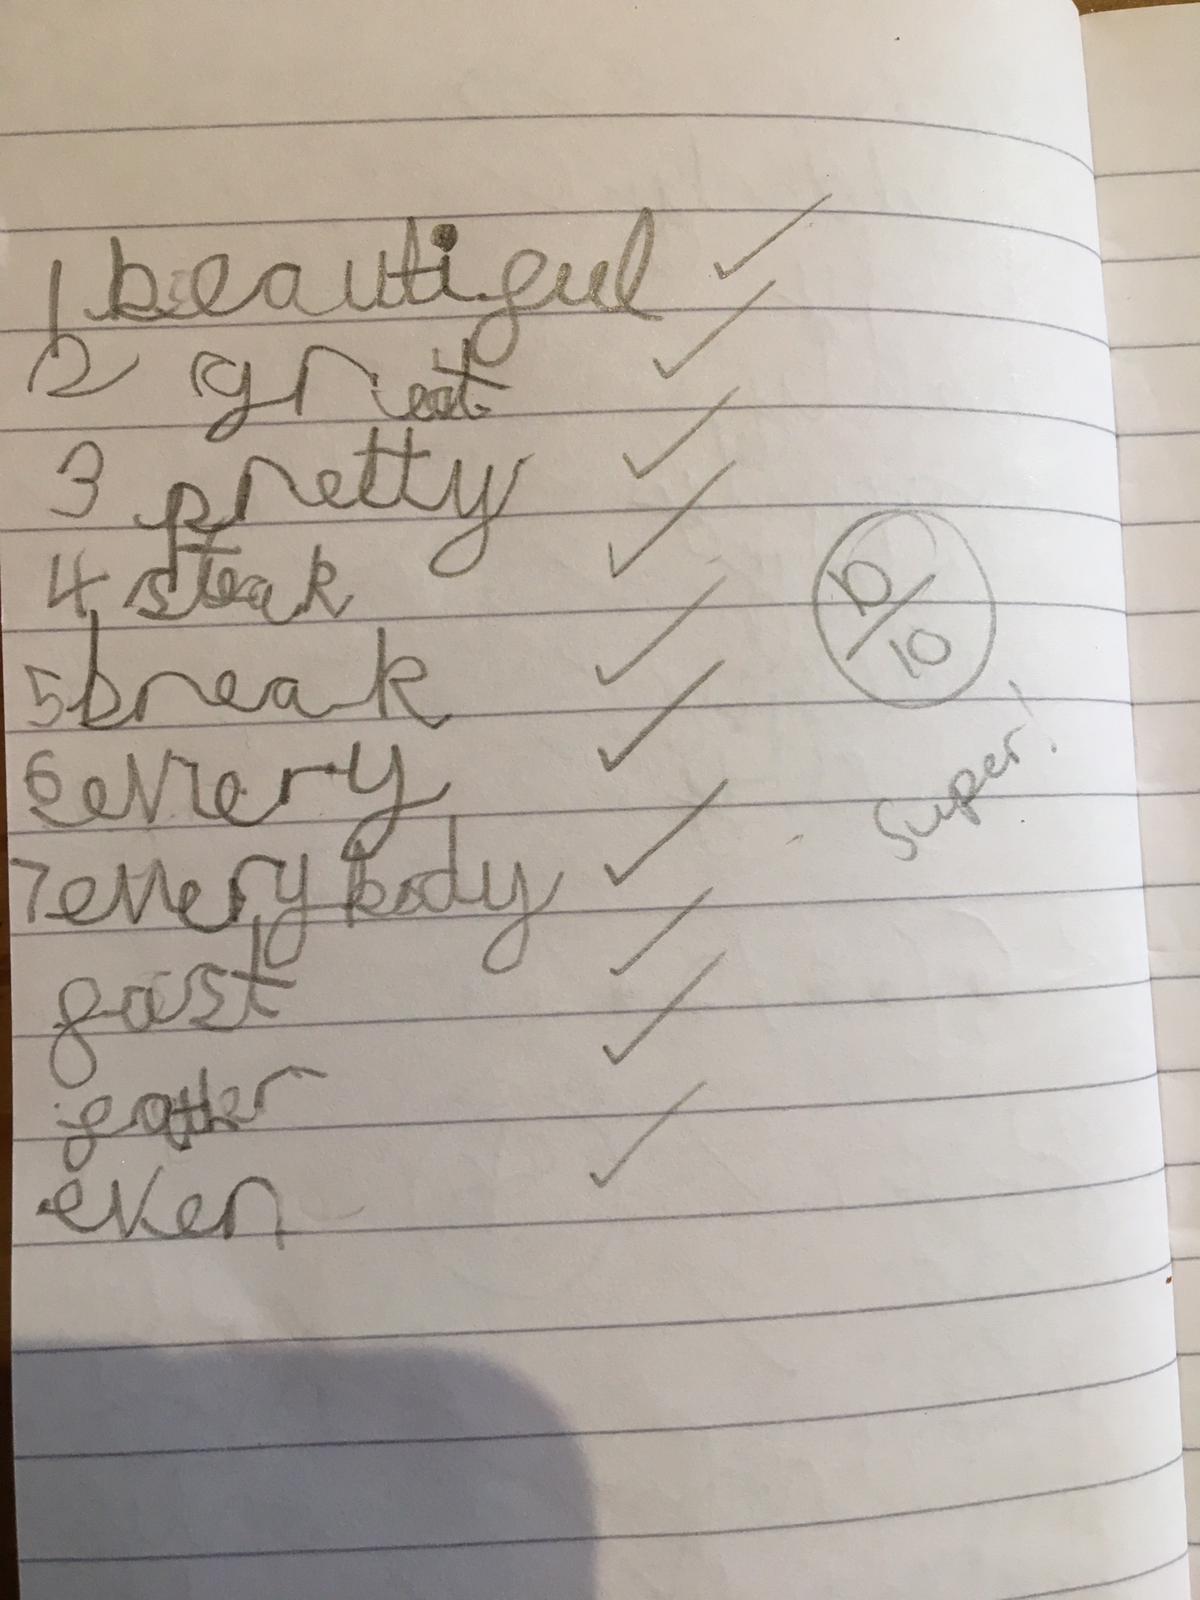 1 beautiful
2 great
3 pretty
4 steak
5 break
6 every
7 everybody
fast
father
even
10/10
Super!